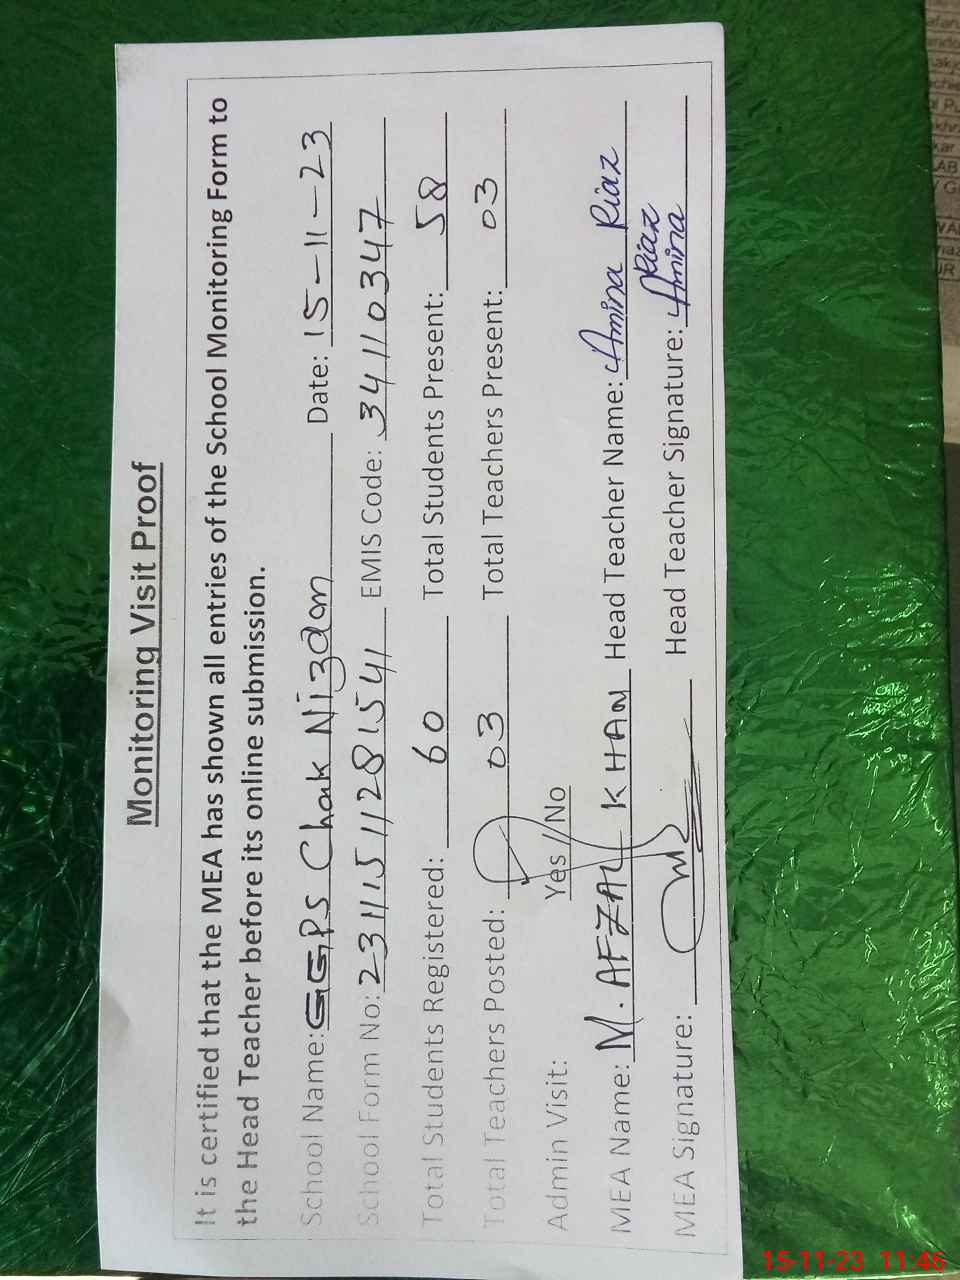 Monitoring Visit Proof
It is certified that the MEA has shown all entries of the School Monitoring Form to
the Head Teacher before its online submission.
School Name: GGPS Chak Nizam Date: 15-11-23
School Form No: 231115112815541 EMIS Code: 34110347
Total Students Registered: 60 Total Students Present: 58
Total Teachers Posted: 03 Total Teachers Present: 03
Admin Visit: Yes/No
MEA Name: M. AFZAL KHAN Head Teacher Name: Amina Riaz
MEA Signature: Head Teacher Signature: Amina Riaz
15-11-23 11:46